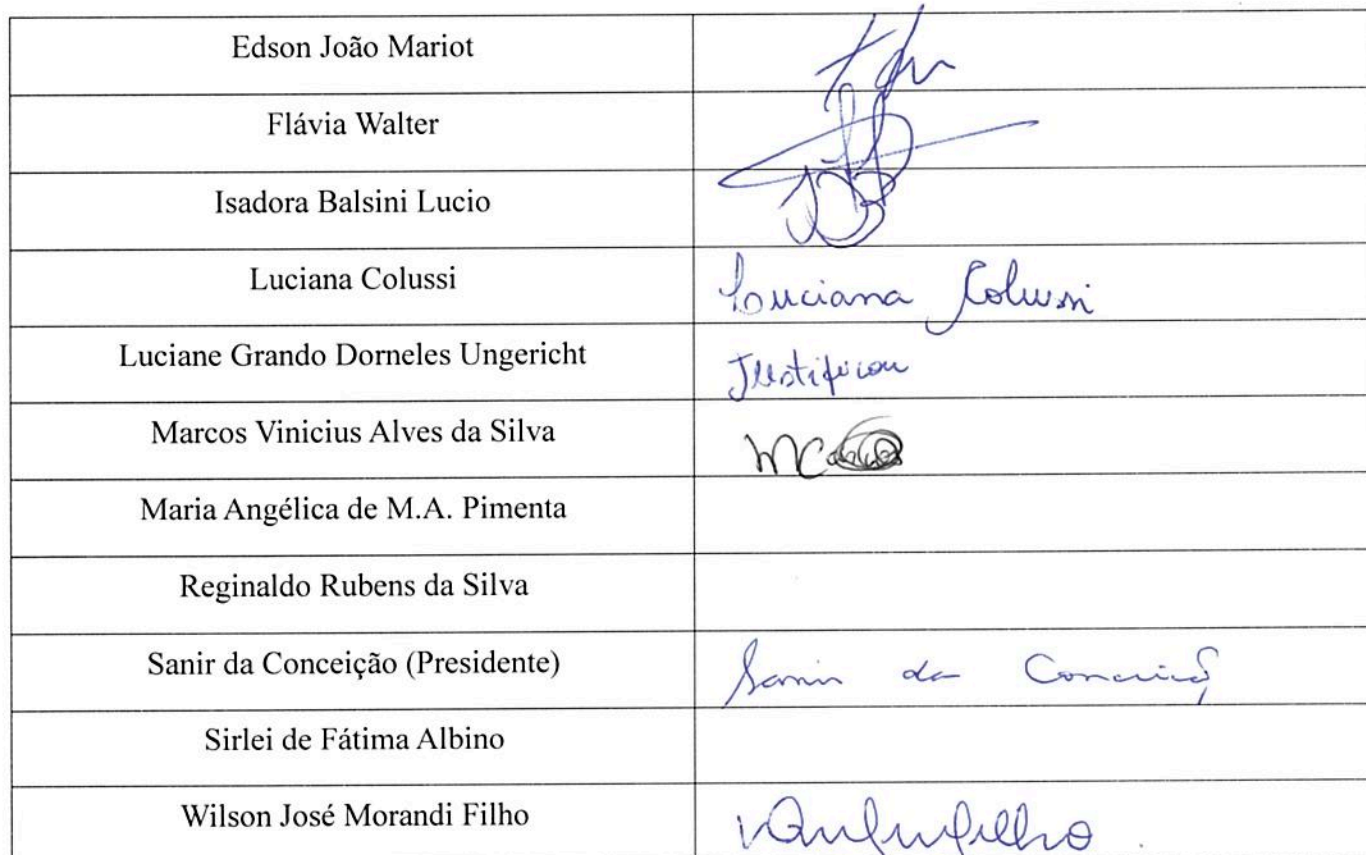 Edson João Mariot
Flávia Walter
Isadora Balsini Lucio
Luciana Colussi Luciana Colussi
Luciane Grando Dorneles Ungericht Justificou
Marcos Vinicius Alves da Silva
Maria Angélica de M.A. Pimenta
Reginaldo Rubens da Silva
Sanir da Conceição (Presidente) Sanir da
Sirlei de Fátima Albino
Wilson José Morandi Filho